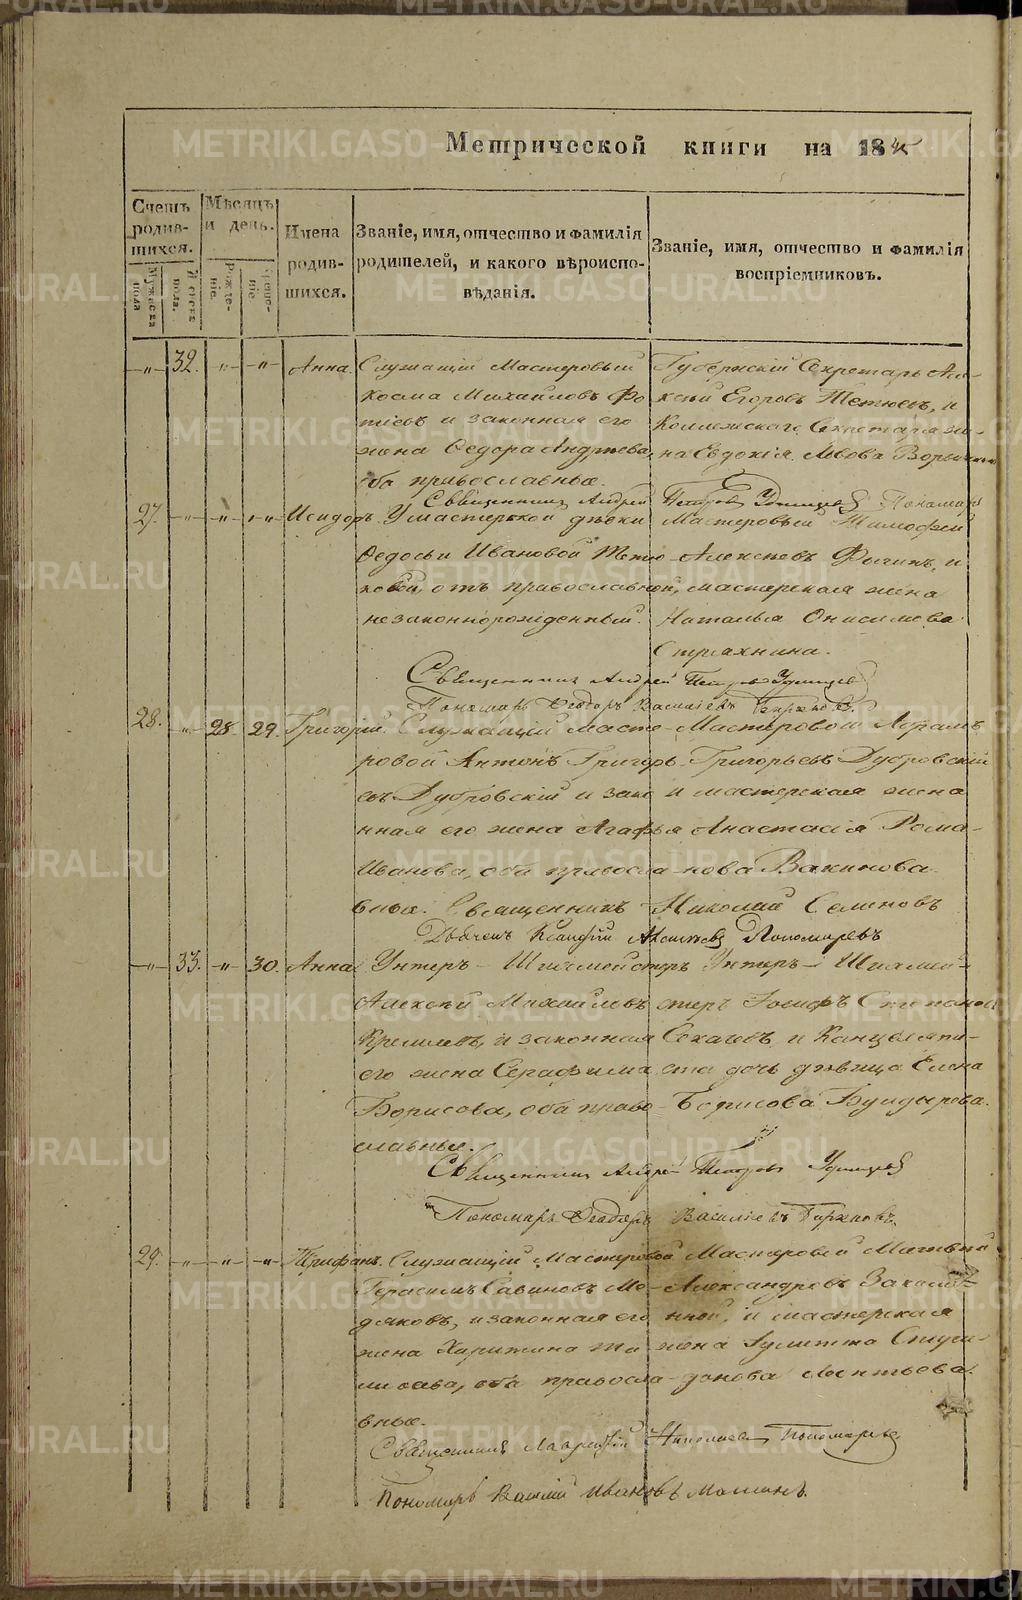 METRIKI.GASO-URAL.RU
Метрической книги на 18
Счетъ родив-шихся.
Мужеска пола
Женска пола.
Мѣсяцъ и день.
Рожде-ніе.
Креще-ніе
Имена родив-шихся.
Званіе, имя, отчество и фамилія родителей, и какого вѣроиспо-вѣданія.
Званіе, имя, отчество и фамилія воспріемниковъ.
-"- 32. -"- -"- Анна. Служащій Мастеровый
Косма Михаиловъ Фо
тіевъ и законная его
жена Ѳедора Андреева,
оба православные.
Губернскій Секретарь Але
ксѣй Егоровъ Тетюевъ, и
Коллежскаго Секретаря же-
на Евдокія Львова
Священникъ Андрей Петровъ Удинцевъ
27. -"- -"- -"- Исидоръ. У мастерской дѣвки
Ѳедосьи Ивановой Тетю
ковой, отъ православной,
незаконнорожденный.
Мастеровый Тимофей
Алексѣевъ и
мастерская жена
Наталья Онисимова
Страхнина.
Священникъ Андрей Петровъ Удинцевъ
Пономарь Ѳеодоръ Василіевъ
28. -"- 28. 29. Григорій. Служащій Масте-
ровой Антонъ Григорь-
евъ Дубровскій и зако
нная его жена Агафья
Иванова, оба правосла
вные.
Мастеровой Абрамъ
Григорьевъ Дубровскій
и мастерская жена
Анастасія Рома-
нова Вакинова.
Священникъ Николай Семеновъ
Дьячекъ Алексѣевъ Пономаревъ
-"- 33. -"- 30. Анна Унтеръ-Шихмейстеръ
Алексѣй Михаиловъ
Кремлевъ, и законная
его жена Серафима
Борисова, оба право-
славные.
Унтеръ-Шихмей-
стеръ Іосифъ Степановъ
Секачевъ и Канцеляри-
ста дочь дѣвица Елена
Борисова Булдырева.
Священникъ Андрей Петровъ Удинцевъ
Пономарь Ѳеодоръ Василіевъ
29. -"- -"- -"- Трифанъ. Служащій Мастеровой
Герасимъ Савиновъ Мо-
дяковъ, и законная его
жена Харитина
оба правосла
вные.
Мастеровый Матвѣй
Александровъ
и мастерская
жена Улитта
Леонтьева.
Священникъ Лаврентій Николаевъ Пономаревъ
Пономарь Василій Ивановъ